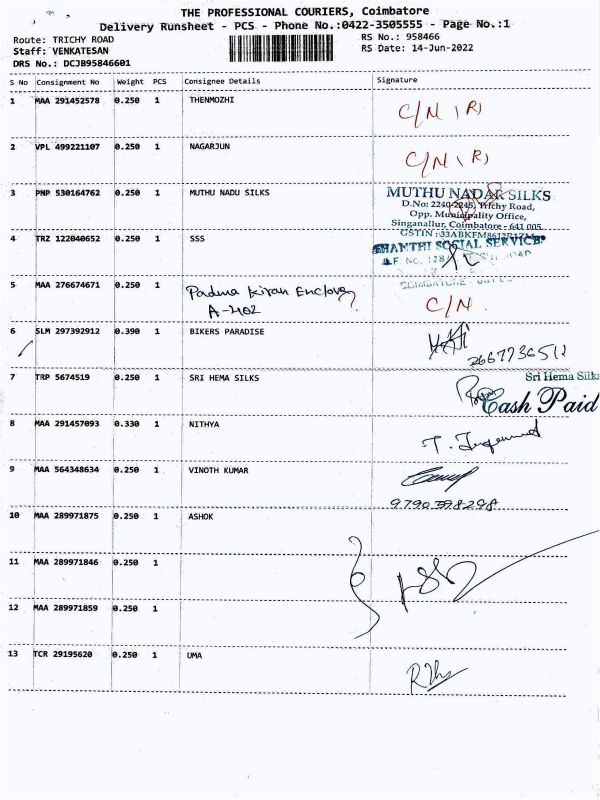 THE PROFESSIONAL COURIERS, Coimbatore
Delivery Runsheet - PCS - Phone No.:0422-3505555 - Page No.:1
Route: TRICHY ROAD
RS No.: 958466
Staff: VENKATESAN
RS Date: 14-Jun-2022
DRS No.: DCJB95846601
S No Consignment No Weight PCS Consignee Details Signature
1 MAA 291452578 0.250 1 THENMOZHI C/N (R)
2 VPL 499221107 0.250 1 NAGARJUN C/N (R)
3 PNP 530164762 0.250 1 MUTHU NADU SILKS
MUTHU NADAR SILKS
D.No: 2240-2245, Trichy Road,
Opp. Municipality Office,
Singanallur, Coimbatore - 641 005.
GSTIN :
4 TRZ 122040652 0.250 1 SSS
SHANTHI SOCIAL SERVICES
COIMBATORE
5 MAA 276674671 0.250 1 Padma Kiran Enclave ? C/N
A-402
6 SLM 297392912 0.390 1 BIKERS PARADISE
7 TRP 5674519 0.250 1 SRI HEMA SILKS
Sri Hema Silks
Cash Paid
8 MAA 291457093 0.330 1 NITHYA
9 MAA 564348634 0.250 1 VINOTH KUMAR
10 MAA 289971875 0.250 1 ASHOK
11 MAA 289971846 0.250 1
12 MAA 289971859 0.250 1
13 TCR 29195620 0.250 1 UMA